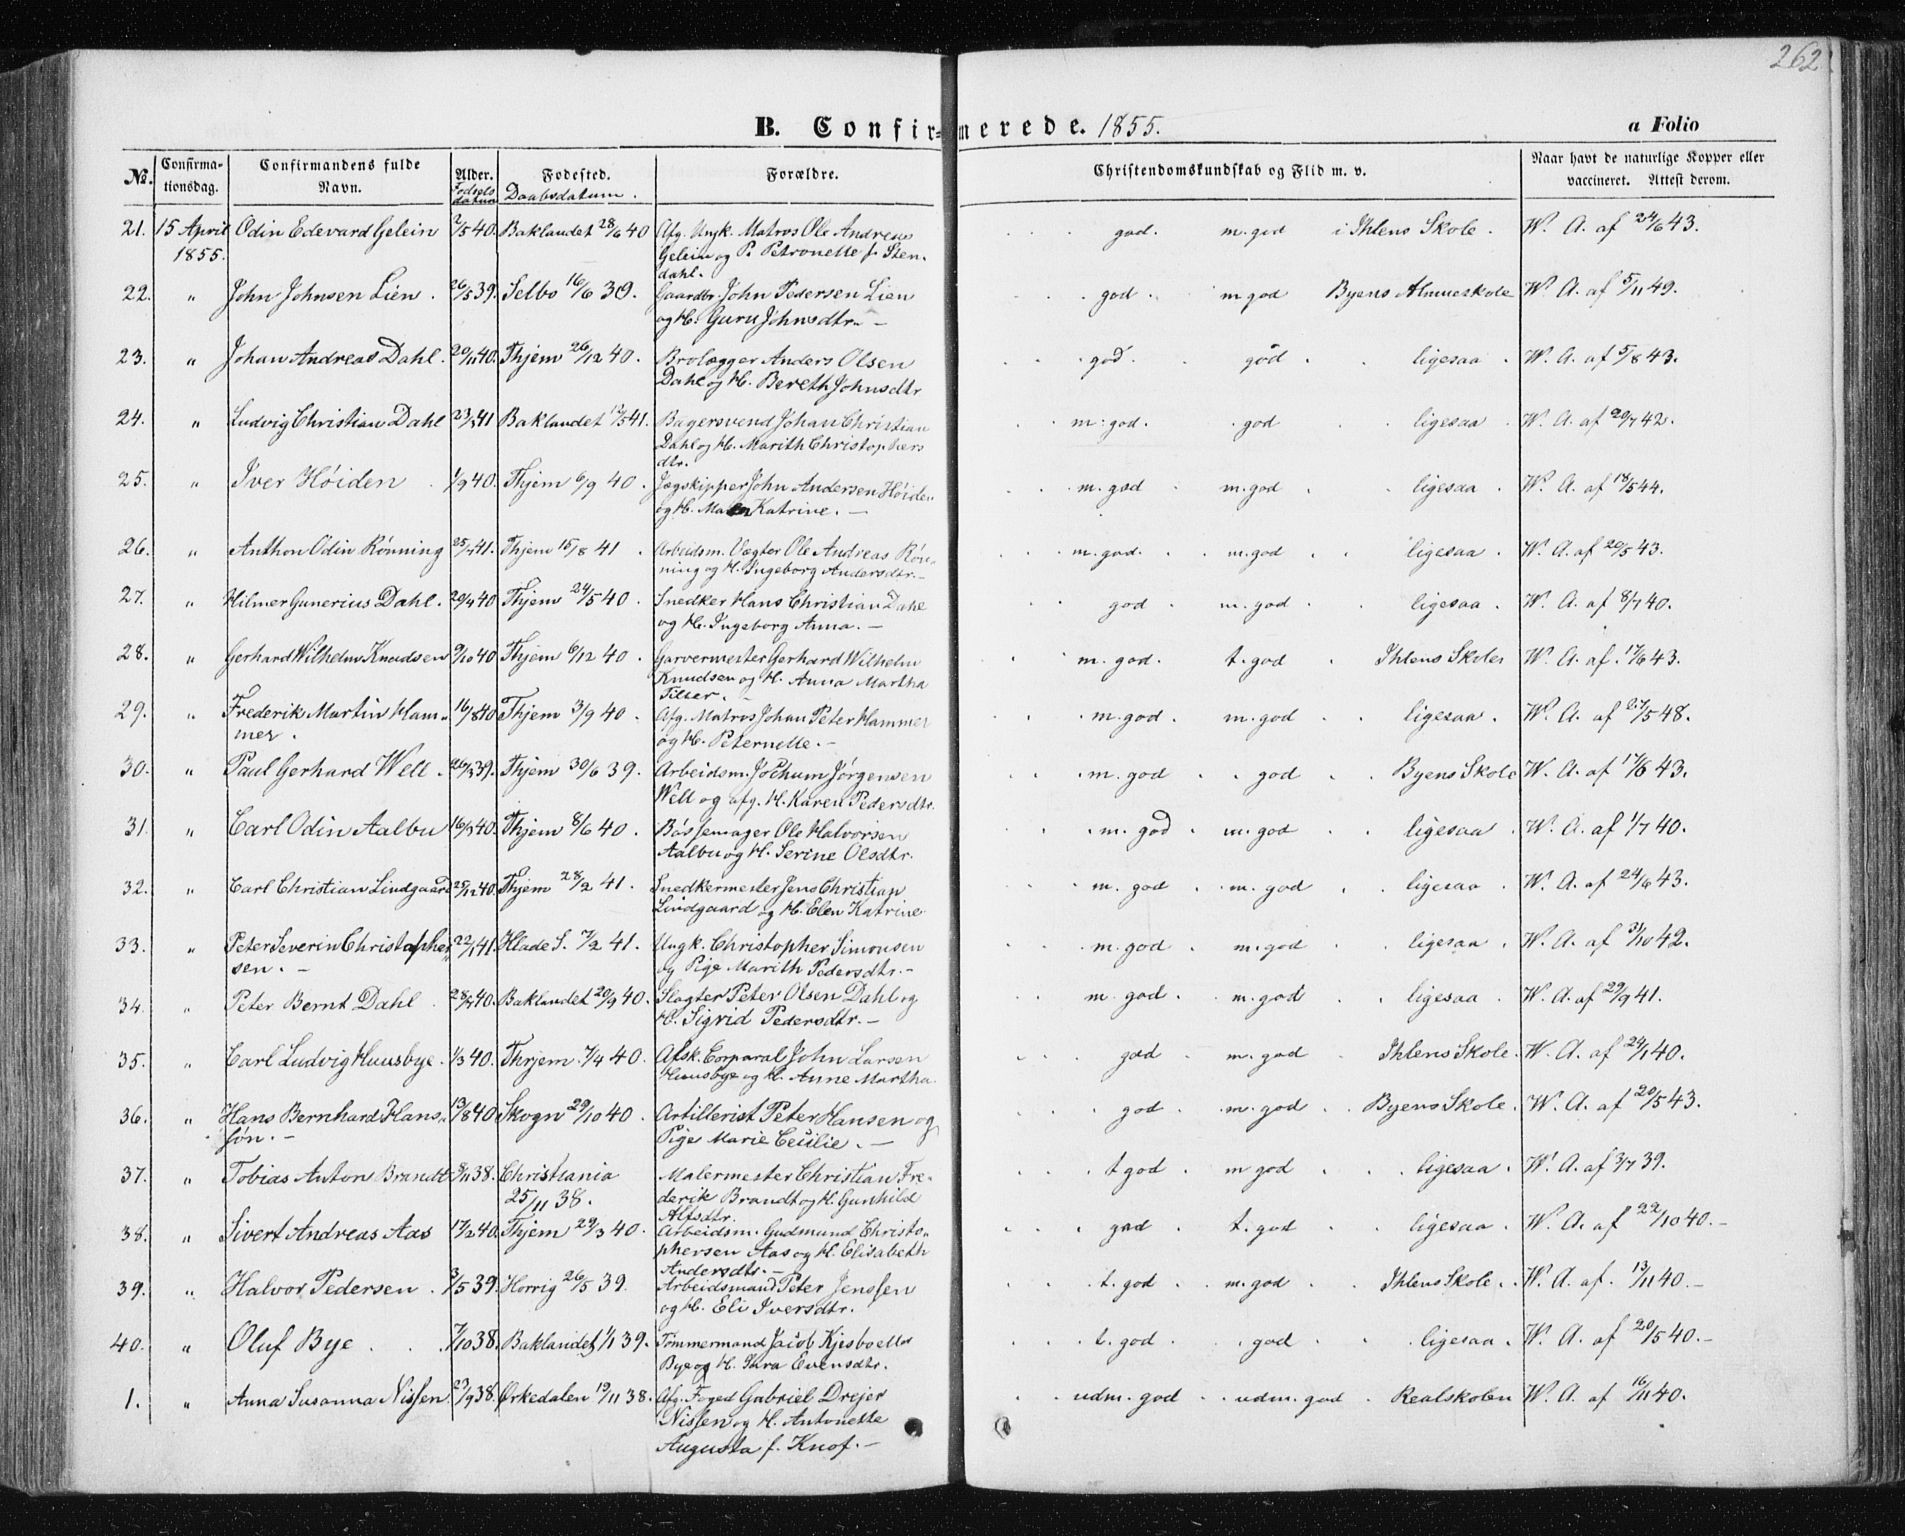 262
B. Confirmerede. 1855.
a Folio
No.
Confirmationsdag.
Confirmandens fulde Navn.
Alder. Fødsels datum
Fødested. Daabsdatum.
Forældre.
Christendomskundskab og Flid m. v.
Naar havt de naturlige Kopper eller vaccineret. Attest derom.
21. 15 April 1855. Odin Edevard Gelein 2/5 40. Baklandet 28/6 40 Afg. Ungk. Matros Ole Andreas Gelein og P. Petronelle f. Stendahl. god. m. god i Ihlens Skole. W. A. af 24/6 43.
22. " John Johnsen Lien. 26/5 39. Selbo 16/6 39. Gaardbr. John Pedersen Lien og H. Guru Johnsdtr. god. m god Byens Almueskole W. A. af 5/11 49.
23. " Johan Andreas Dahl. 20/11 40. Thjem 26/12 40. Brolægger Anders Olsen Dahl og H. Bereth Johnsdtr god. god ligesaa. W. A. af 5/8 43.
24. " Ludvig Christian Dahl 41 Baklandet 12/5 41. Bagersvend Johan Christian Dahl og H. Marith Christophersdtr. m: god. god ligesaa. W. A. af 20/7 42.
25. " Iver Høiden 1/9 40. Thjem 6/9 40. Jægskipper John Andersen Høiden og H. Katrine. m. god m. god ligesaa. W. A. af 18/5 44.
26. " Anthon Odin Rønning 41. Thjem 15/8 41. Arbeidsm. Vægter Ole Andreas Rønning og H. Ingeborg Andersdtr. m. god. m. god ligesaa. W. A. af 20/5 43.
27. " Hilmer Gunerius Dahl. 20/4 40 Thjem 24/5 40. Snedker Hans Christian Dahl og H. Ingeborg Anna. god m. god. ligesaa. W. A. af 8/7 40.
28. " Gerhard Wilhelm Knudsen 9/10 40 Thjem 6/12 40. Garvermester Gerhard Wilhelm Knudsen og H. Anna Martha Tiller. m. god. t. god Ihlens Skoles W. A. af. 17/6 43.
29. " Frederik Martin Hammer. 16/8 40 Thjem 3/9 40. Afg. Matros Johan Peter Hammer og H. Peternelle. m. god. m. god. ligesaa. W. A. af 5 48.
30. " Paul Gerhard Well. 39. Thjem 30/6 39. Arbeidsm. Jochum Jørgensen Well og afg. H. Karen Pedersdtr. m. god god. Byens Skole W. A. af 17/6 43.
31. " Carl Odin Aalbu 40. Thjem 8/6 40. Bøssemager Ole Halvorsen Aalbu og H. Serine Olsdtr. m. god. m. god ligesaa. W. A. af 1/7 40.
32. " Carl Christian Lindgaard 25/12 40. Thjem 28/2 41. Snedkermester Jens Christian Lindgaard og H. Elen Katrine. m. god. m. god ligesaa. W. A. af 24/6 43.
33. " Peter Severin Christophersen. 22/1 41. Hlade S. 7/2 41. Ungk. Christopher Simonsen og Pige Marith Pedersdtr. m. god m. god. ligesaa. W. A. af 31/10 42.
34. " Peter Bernt Dahl. 40. Baklandet 20/9 40. Slagter Peter Olsen Dahl og H. Sigrid Pedersdtr. m. god. m. god ligesaa. W. A. af 29/9 41.
35. " Carl Ludvig Huusbye. 1/3 40. Thrjem. 7/4 40. Afsk. Corporal John Larsen Huusbye og H. Anne Martha. god m. god Ihlens Skole. W. A. af 24/1 40.
36. " Hans Bernhard Hanssøn. 13/8 40 Skogn 29/10 40. Artillerist Peter Hansen og Pige Marie Cecilie. god. m. god. Byens Skole. W. A. af 20/5 43.
37. " Tobias Anton Brandt 38. Christiania 25/11 38. Malermester Christian Frederik Brandt og H. Gunhild Alfsdtr. t. god. m god ligesaa. W. A. af 3/7 39.
38. " Sivert Andreas Aas 17/2 40. Thjem 29/3 40. Arbeidsm. Gudmund Christophersen Aas og H. Elisabeth Andersdtr. god t. god ligesaa. W. A. af 22/10 40.
39. " Halvor Pedersen. 3/5 39. Horrig 26/5 39. Arbeidsmand Peter Jenssen og H. Eli Iversdtr. t. god m. god Ihlens Skole. W. A. af. 13/11 40.
40. " Oluf Bye 7/10 38. Baklandet 1/1 39. Tømmermand Jacob Bye og H. Evensdtr. t. god god ligesaa. W. A. af 20/5 40.
1. " Anna Susanna Nissen 23/9 38. Ørkedalen 19/11 38. Afg. Foged Gabriel Drejer Nissen og H. Antonette Augusta f. Knof. udm. god udm. god Realskolen W. A. af 16/11 40.